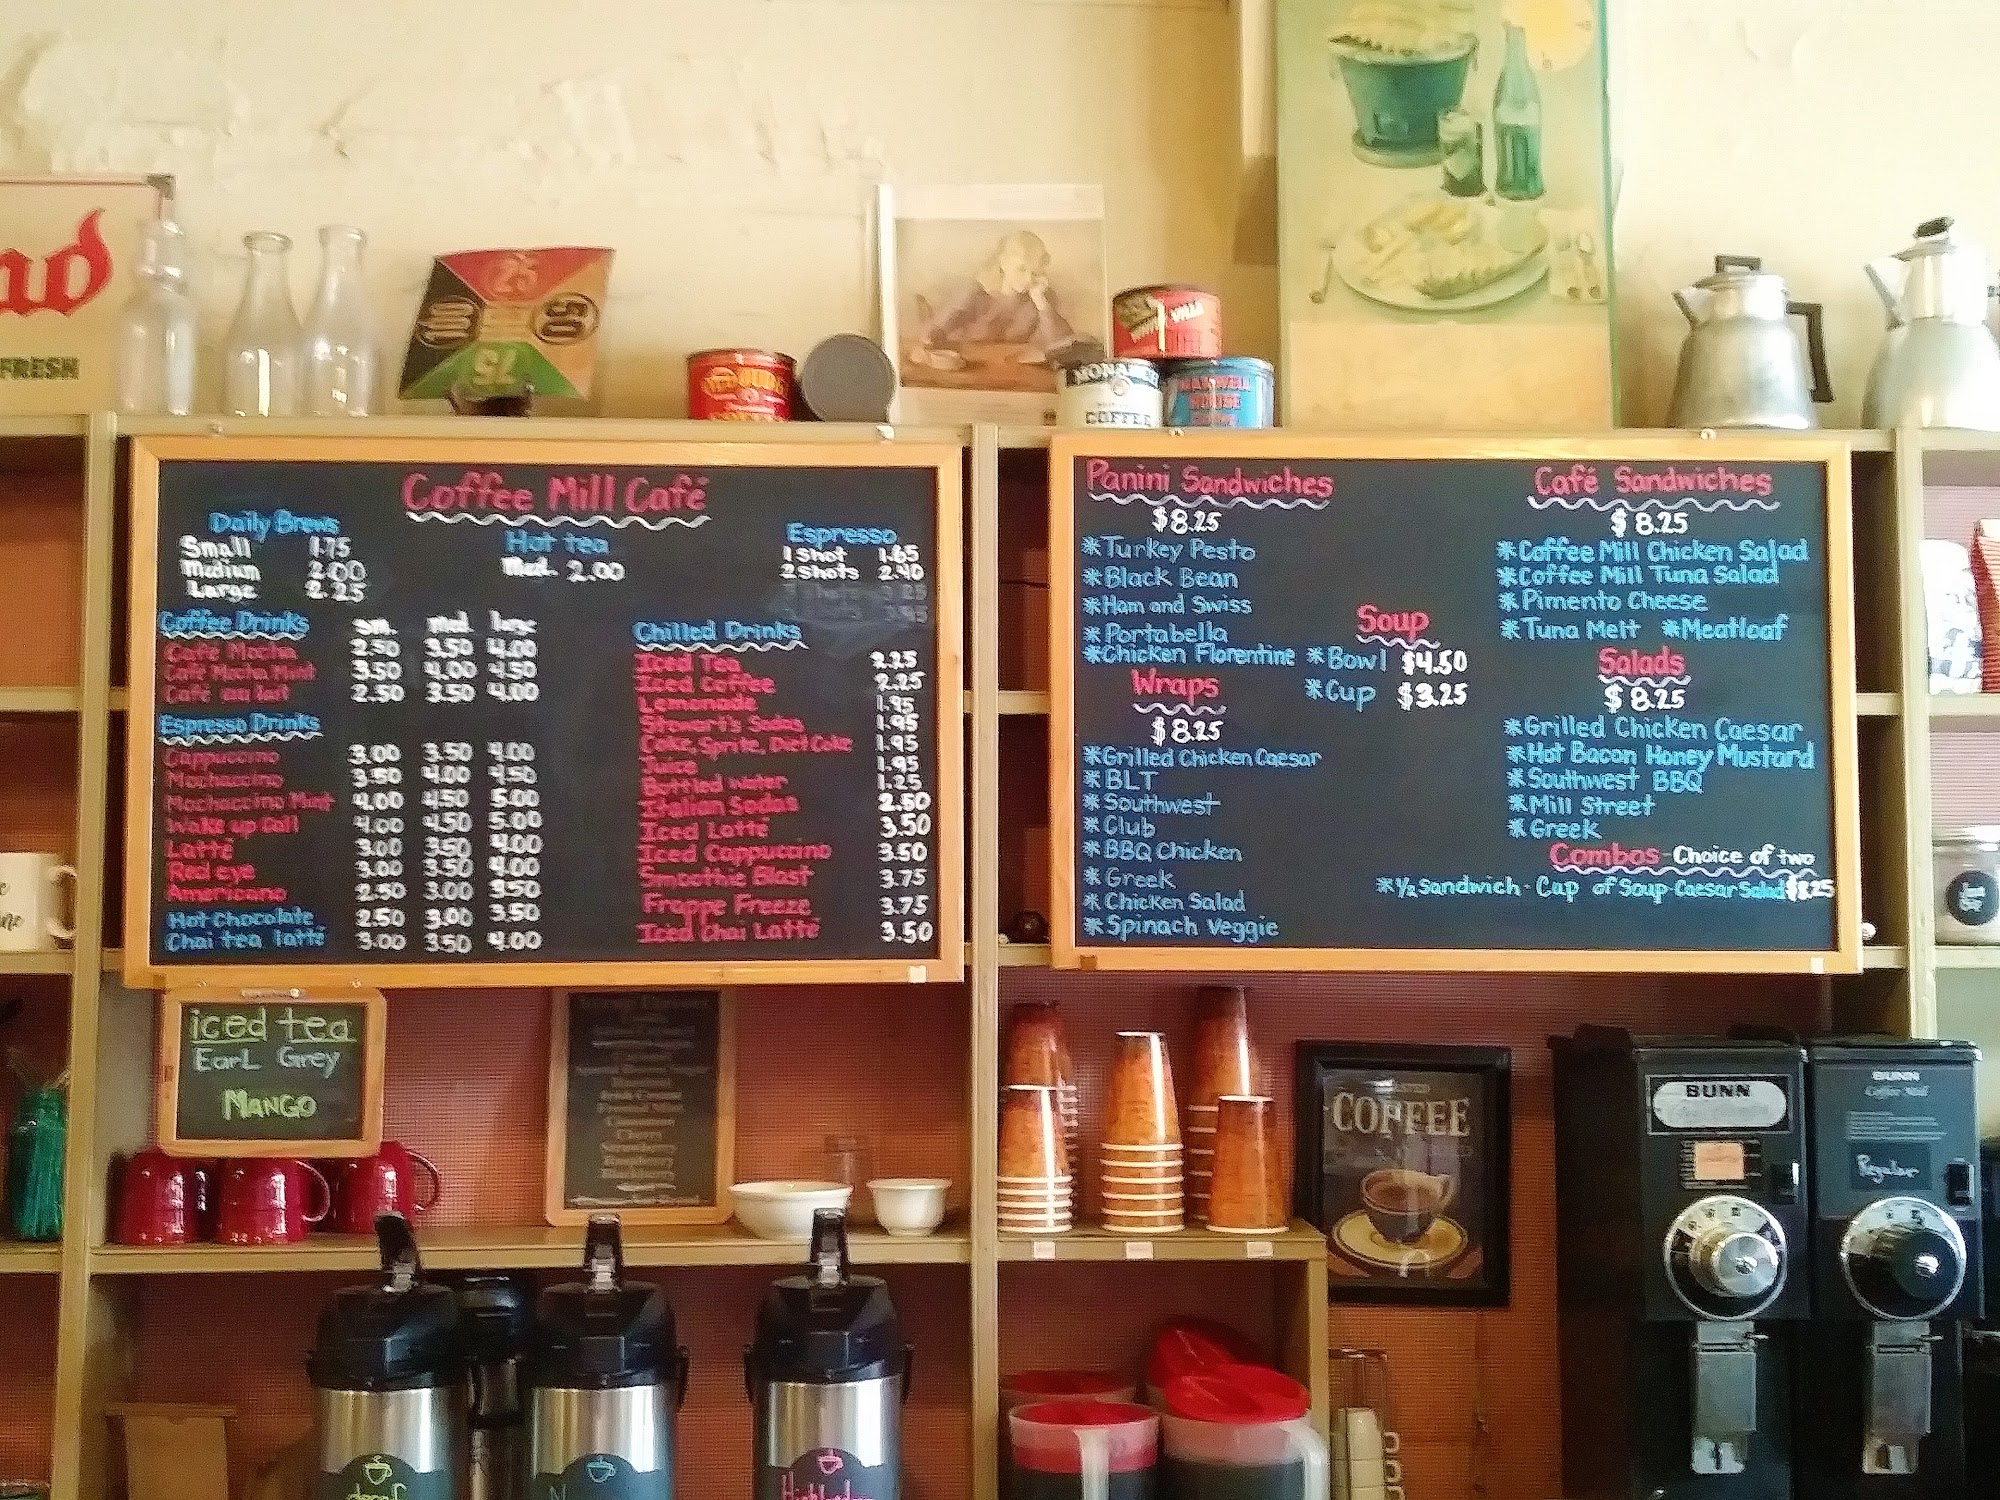 FRESH
25
100
50
75
MONARCH
COFFEE
MAXWELL
HOUSE
Coffee Mill Café
Daily Brews
Small 1.75
Medium 2.00
Large 2.25
Hot tea
Med. 2.00
Espresso
1 Shot 1.65
2 Shots 2.40
Coffee Drinks sm. med. large
Café Mocha 2.50 3.50 4.00
Café Mocha Mint 3.50 4.00 4.50
Café au lait 2.50 3.50 4.00
Espresso Drinks
Cappuccino 3.00 3.50 4.00
Mochaccino 3.50 4.00 4.50
Mochaccino Mint 4.00 4.50 5.00
Wake up Call 4.00 4.50 5.00
Latté 3.00 3.50 4.00
Red eye 3.00 3.50 4.00
Americano 2.50 3.00 3.50
Hot Chocolate 2.50 3.00 3.50
Chai tea latté 3.00 3.50 4.00
Chilled Drinks
Iced Tea 2.25
Iced Coffee 2.25
Lemonade 1.95
Stewart's Sodas 1.95
Coke, Sprite, Diet Coke 1.95
Juice 1.95
Bottled water 1.25
Italian Sodas 2.50
Iced Latté 3.50
Iced Cappuccino 3.50
Smoothie Blast 3.75
Frappe Freeze 3.75
Iced Chai Latté 3.50
Panini Sandwiches
$8.25
*Turkey Pesto
*Black Bean
*Ham and Swiss
*Portabella
*Chicken Florentine
Wraps
$8.25
*Grilled Chicken Caesar
*BLT
*Southwest
*Club
*BBQ Chicken
*Greek
*Chicken Salad
*Spinach Veggie
Soup
*Bowl $4.50
*Cup $3.25
Café Sandwiches
$8.25
*Coffee Mill Chicken Salad
*Coffee Mill Tuna Salad
*Pimento Cheese
*Tuna Melt *Meatloaf
Salads
$8.25
*Grilled Chicken Caesar
*Hot Bacon Honey Mustard
*Southwest BBQ
*Mill Street
*Greek
Combos - Choice of two
*½ Sandwich - Cup of Soup - Caesar Salad $8.25
iced tea
Earl Grey
MANGO
COFFEE
BUNN
BUNN
Coffee Mill
Regular
decaf